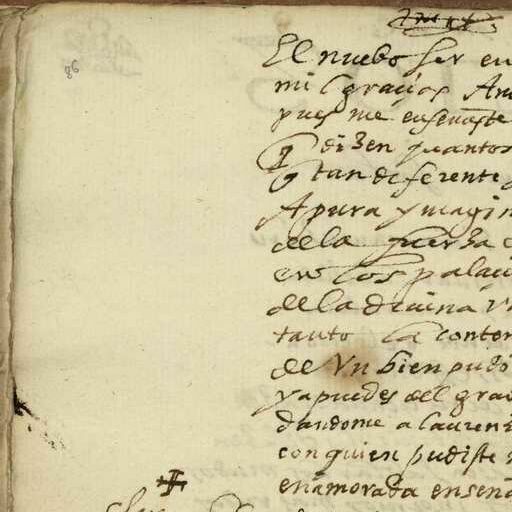 86
El nuebo ser en
mil graçias Am
pues me enseñaste
q̃ dizen quantos
q̃ tan diferente
Apura ymagin
de la fuerza
en los palaçi
de la divina
tanto la conten
de Vn bien pudo
ya puedes del gra
dandome a lauren
con quien pudiste
enamorada ensen